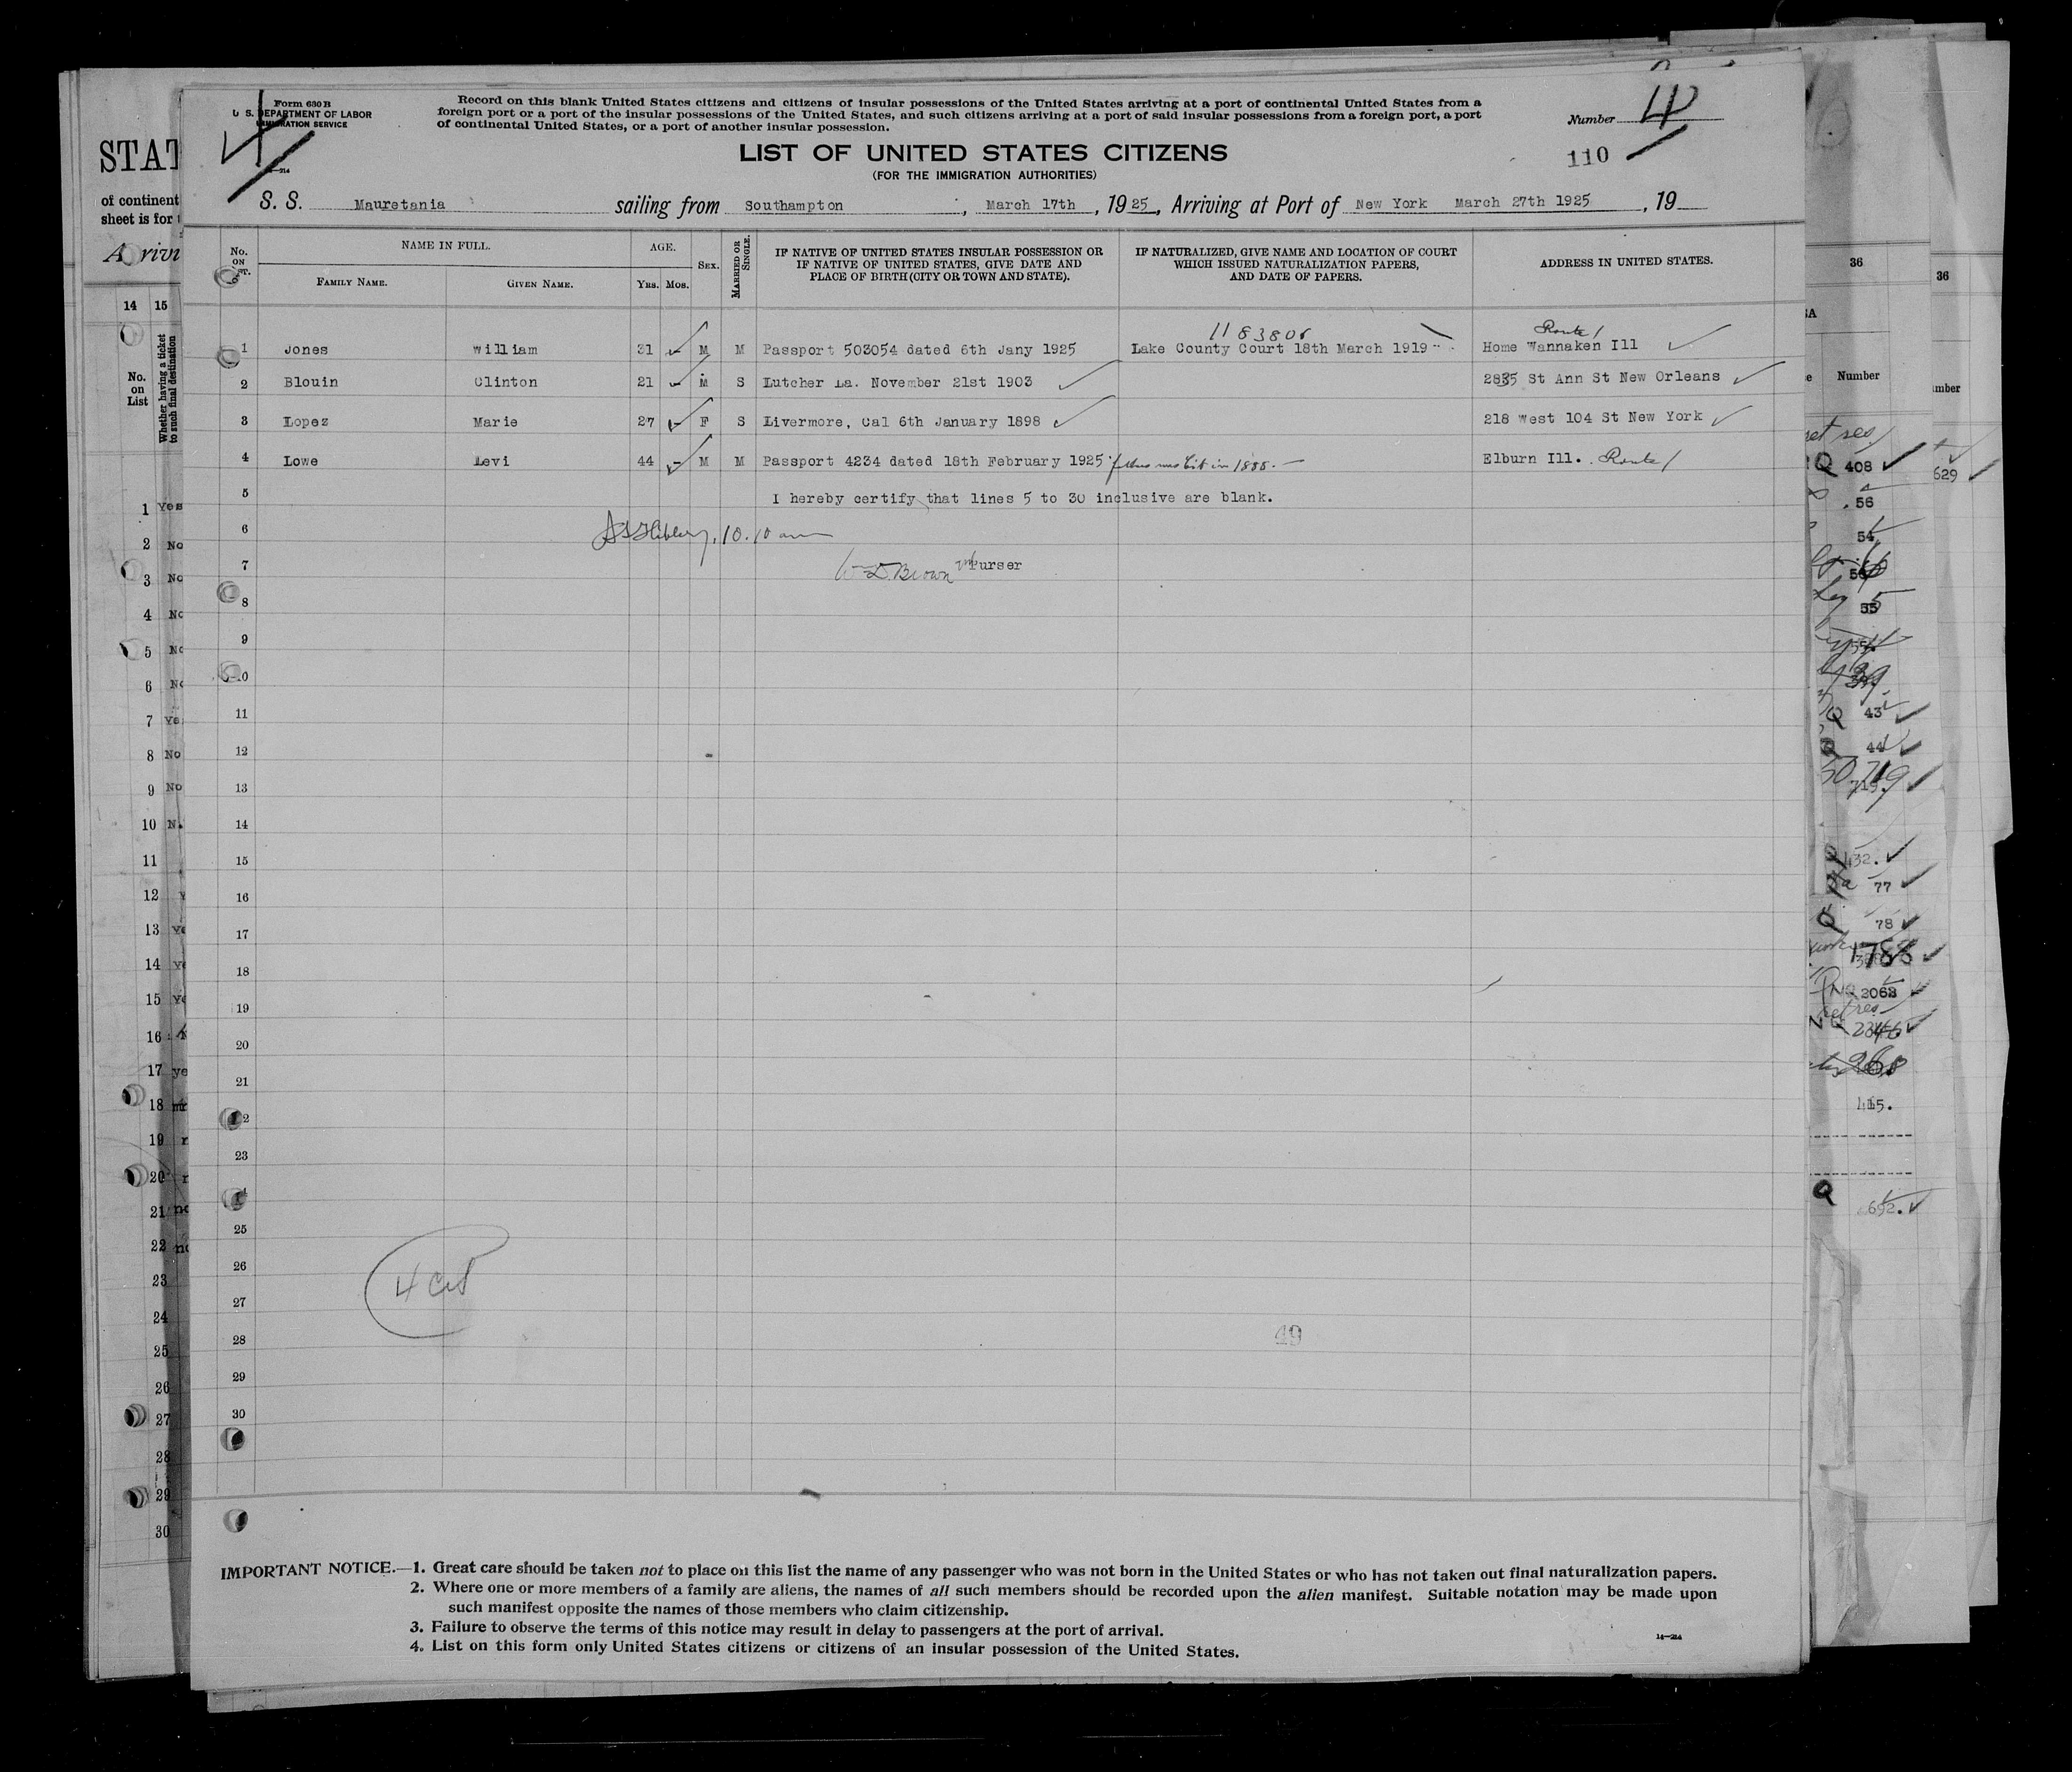 Form 630 B
U. S. DEPARTMENT OF LABOR
IMMIGRATION SERVICE
Record on this blank United States citizens and citizens of insular possessions of the United States arriving at a port of continental United States from a
foreign port or a port of the insular possessions of the United States, and such citizens arriving at a port of said insular possessions from a foreign port, a port
of continental United States, or a port of another insular possession.
Number 4
4
110
LIST OF UNITED STATES CITIZENS
(FOR THE IMMIGRATION AUTHORITIES)
S. S. Mauretania sailing from Southampton, March 17th, 1925, Arriving at Port of New York March 27th 1925, 19
No. ON LIST.
NAME IN FULL.
FAMILY NAME. GIVEN NAME.
AGE.
YRS. MOS.
SEX.
MARRIED OR SINGLE.
IF NATIVE OF UNITED STATES INSULAR POSSESSION OR
IF NATIVE OF UNITED STATES, GIVE DATE AND
PLACE OF BIRTH (CITY OR TOWN AND STATE).
IF NATURALIZED, GIVE NAME AND LOCATION OF COURT
WHICH ISSUED NATURALIZATION PAPERS,
AND DATE OF PAPERS.
ADDRESS IN UNITED STATES.
1183806 Route 1
1 Jones William 31 - M M Passport 503054 dated 6th Jany 1925 Lake County Court 18th March 1919 Home Wannaken Ill
2 Blouin Clinton 21 - M S Lutcher La. November 21st 1903 2835 St Ann St New Orleans
3 Lopez Marie 27 - F S Livermore, Cal 6th January 1898 218 West 104 St New York
4 Lowe Levi 44 - M M Passport 4234 dated 18th February 1925 father was cit in 1888. Elburn Ill. Route 1
5 I hereby certify that lines 5 to 30 inclusive are blank.
6 10.10 am
7 W D Brown Purser
8
9
10
11
12
13
14
15
16
17
18
19
20
21
22
23
25
26
27
28
29
30
4 cit
49
IMPORTANT NOTICE.—1. Great care should be taken not to place on this list the name of any passenger who was not born in the United States or who has not taken out final naturalization papers.
2. Where one or more members of a family are aliens, the names of all such members should be recorded upon the alien manifest. Suitable notation may be made upon
such manifest opposite the names of those members who claim citizenship.
3. Failure to observe the terms of this notice may result in delay to passengers at the port of arrival.
4. List on this form only United States citizens or citizens of an insular possession of the United States.
14—214